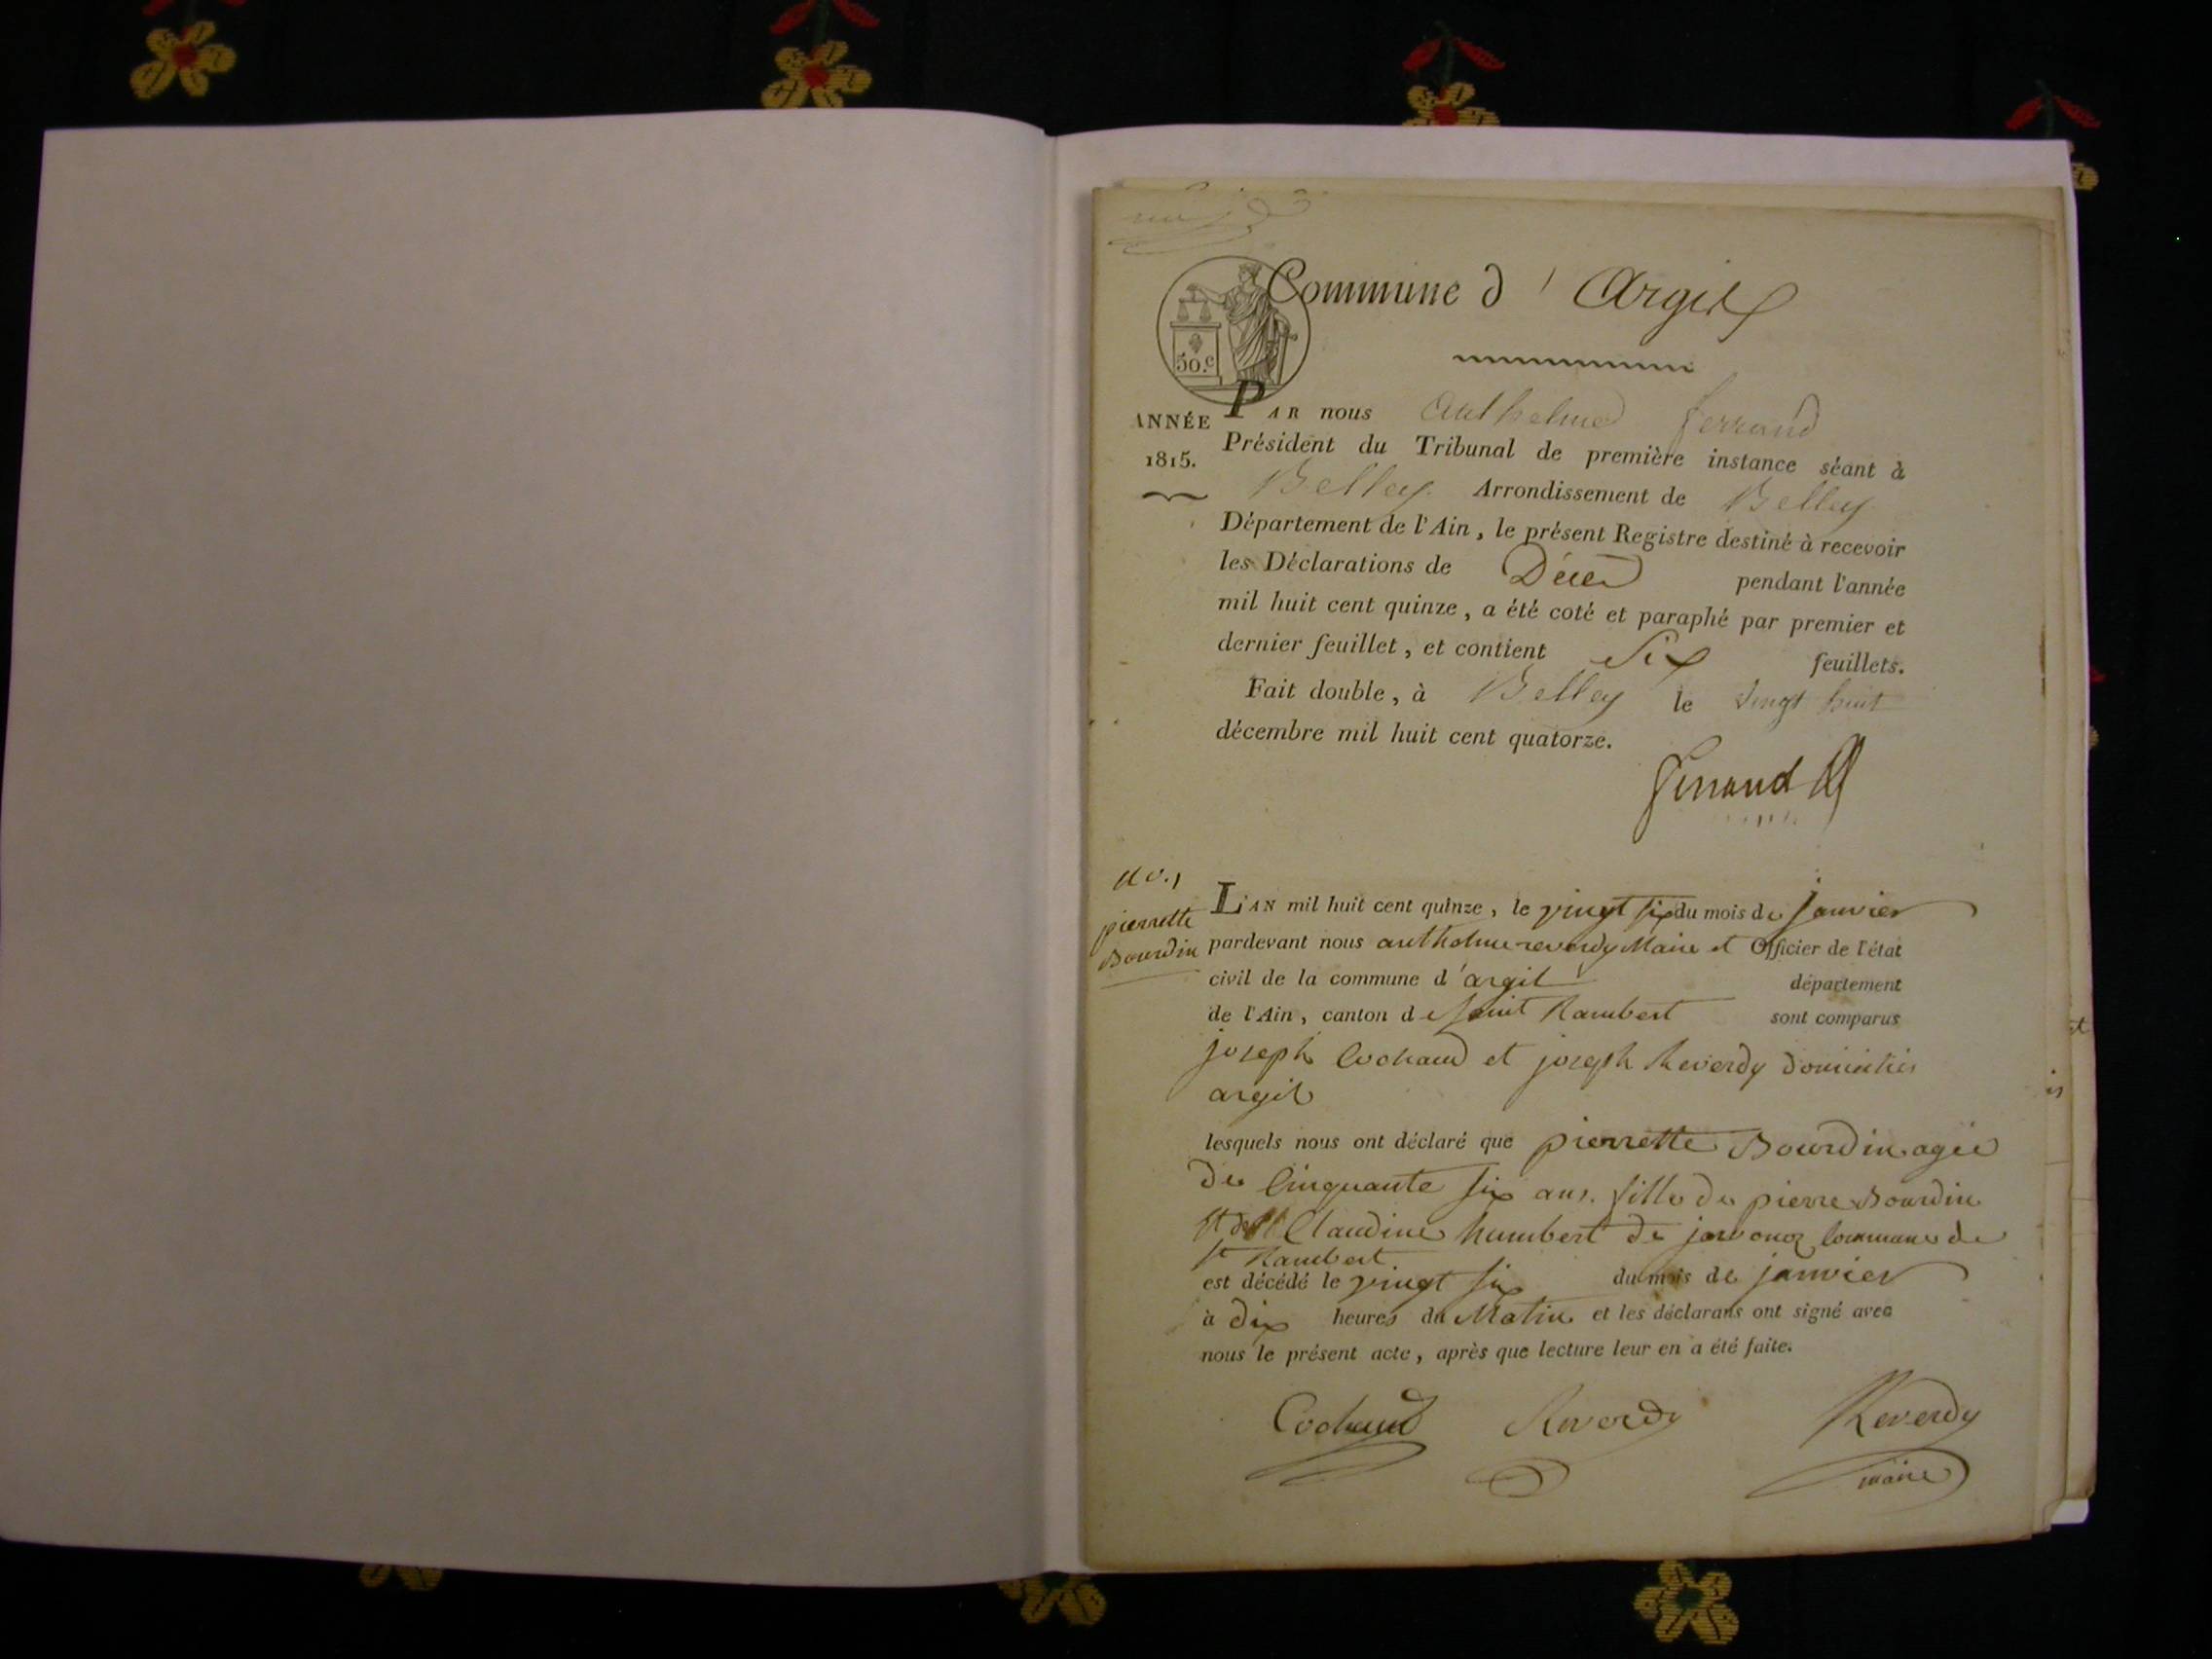 Commune d'Argis
50.c
ANNÉE
1815.
PAR nous Anthelme ferrand
Président du Tribunal de première instance séant à
Belley Arrondissement de Belley
Département de l'Ain, le présent Registre destiné à recevoir
les Déclarations de Décès pendant l'année
mil huit cent quinze, a été coté et paraphé par premier et
dernier feuillet, et contient Six feuillets.
Fait double, à Belley le vingt huit
décembre mil huit cent quatorze.
ferrand
no. 1
pierrette
Bourdin
L'AN mil huit cent quinze, le vingt six du mois de janvier
pardevant nous anthelme reverdy Maire et Officier de l'état
civil de la commune d'argit département
de l'Ain, canton de saint Rambert sont comparus
joseph Cochaud et joseph Reverdy
argit
lesquels nous ont déclaré que pierrette Bourdin agée
de Cinquante six ans. fille de pierre Bourdin
et de Claudine humbert de commune de
st Rambert
est décédé le vingt six du mois de janvier
à dix heures du Matin et les déclarans ont signé avec
nous le présent acte, après que lecture leur en a été faite.
Cochaud Reverdy Reverdy
maire